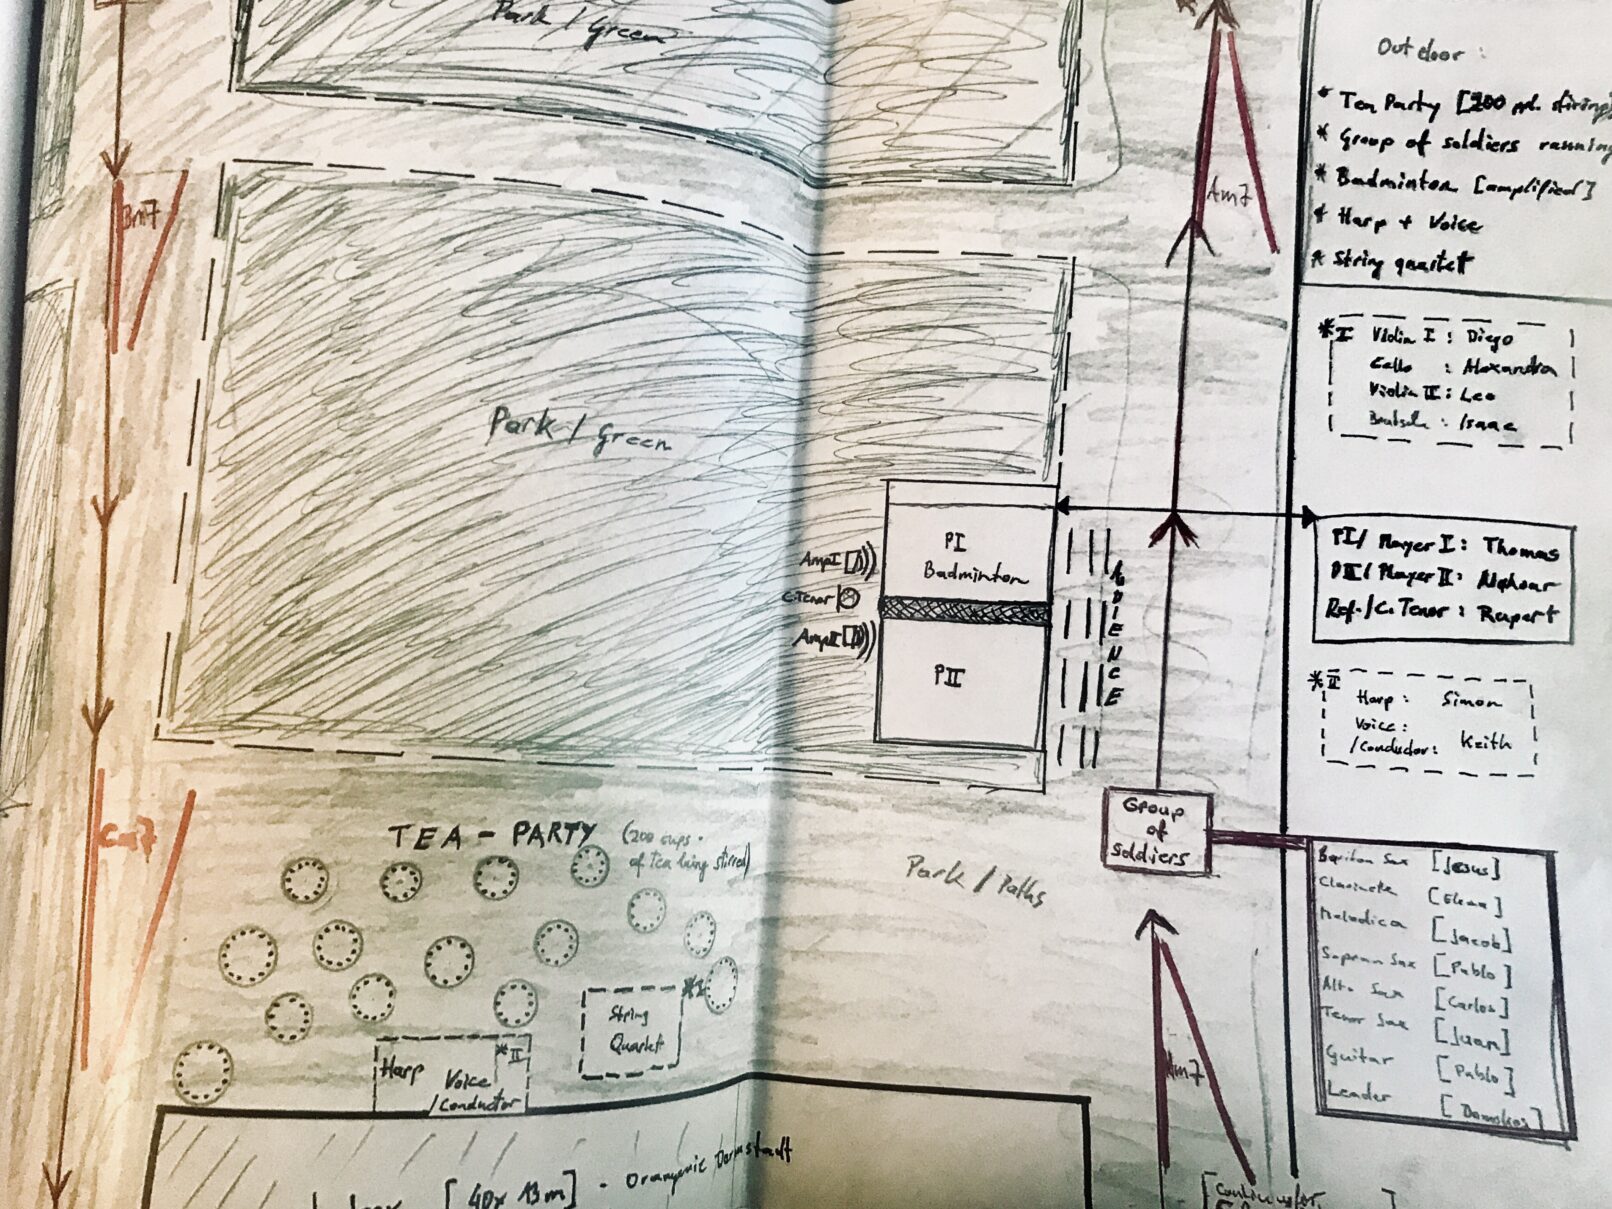 Park / Green
Outdoor :
* Tea Party [200 ppl. stiring]
* Group of soldiers running
* Badminton [amplified]
* Harp + Voice
* String quartet
Bm7
Am7
*I Violin I : Diego
Cello : Alexandra
Violin II : Leo
: Isaac
Park / Green
PI
Badminton
Amp I
C.Tenor
Amp II
PII
AUDIENCE
PI / Player I : Thomas
PII / Player II :
Ref. / C. Tenor : Rupert
*II
Harp : Simon
Voice :
/Conductor : Keith
Cm7
TEA - PARTY (200 cups
of tea being stirred)
Park / Paths
Group
of
soldiers
Bariton Sax [Jesus]
Clarinete [Elena]
Melodica [Jacob]
Sopran Sax [Pablo]
Alto Sax [Carlos]
Tenor Sax [Juan]
Guitar [Pablo]
Leader [Damskos]
*I
String
Quartet
*II
Harp
Voice
/Conductor
Am7
[40x13m] - Orangerie Darmstadt